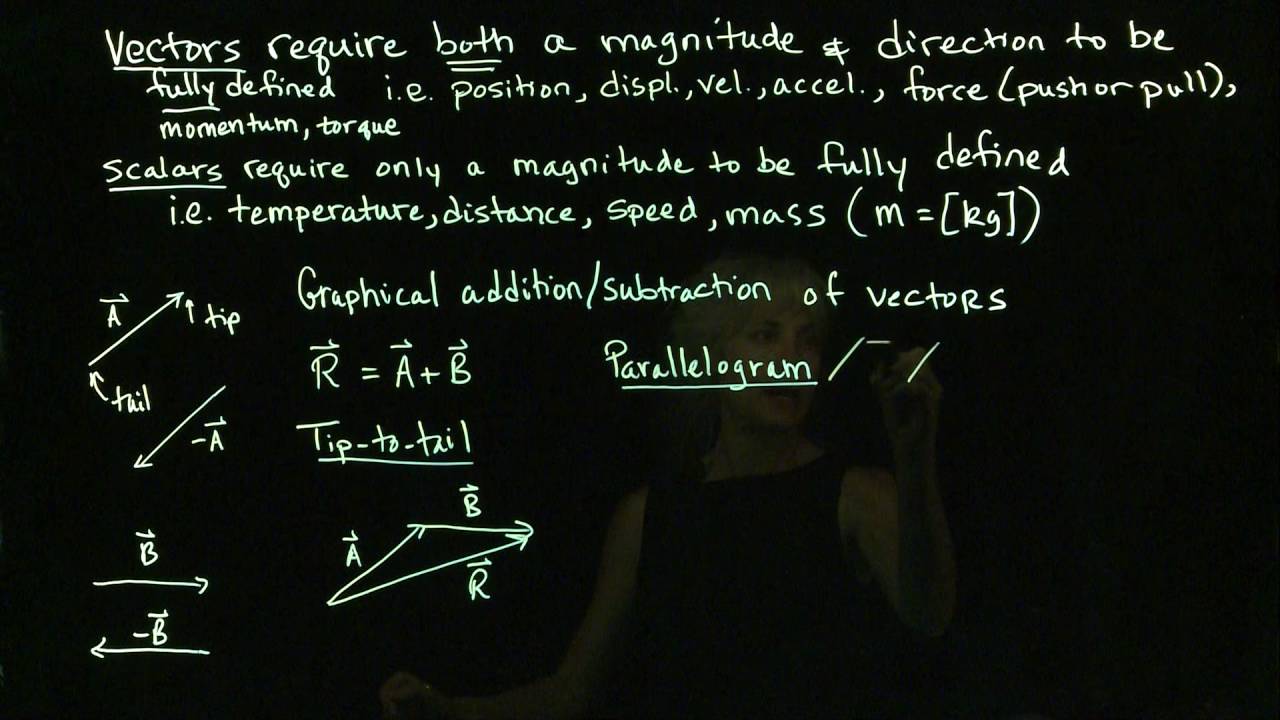 Vectors require both a magnitude & direction to be
fully defined i.e. position, displ., vel., accel., force (push or pull),
momentum, torque
scalars require only a magnitude to be fully defined
i.e. temperature, distance, speed, mass (m = [kg])
Graphical addition/subtraction of vectors
A⃗
tip
tail
-A⃗
R⃗ = A⃗ + B⃗
Parallelogram
Tip-to-tail
B⃗
-B⃗
A⃗
B⃗
R⃗